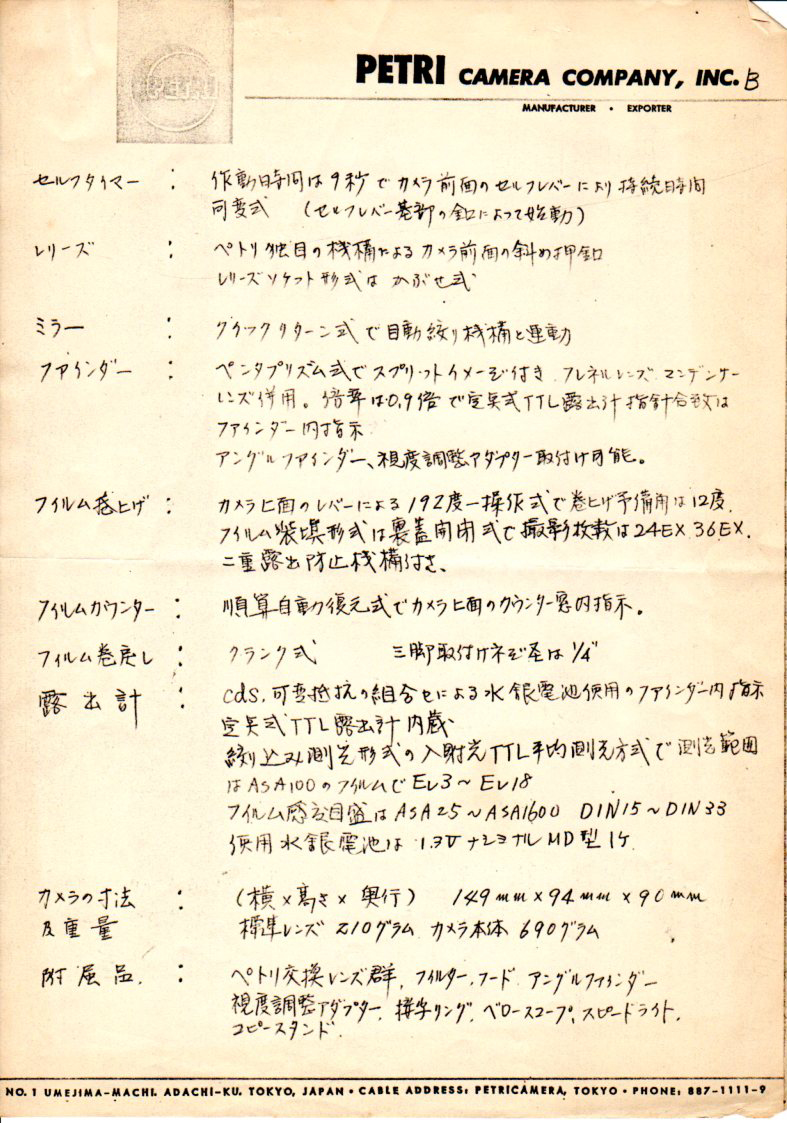 PETRI
PETRI CAMERA COMPANY, INC. B
MANUFACTURER • EXPORTER
セルフタイマー : 作動時間は9秒でカメラ前面のセルフレバーにより持続時間
可変式 (セルフレバー基部の釦によって始動)
レリーズ : ペトリ独自の機構によるカメラ前面の斜め押釦
レリーズソケット形式はかぶせ式
ミラー : クイックリターン式で自動絞り機構と連動
ファインダー : ペンタプリズム式でスプリットイメージ付き フレネルレンズ、コンデンサー
レンズ併用。倍率は0.9倍で定点式TTL露出計指針合致は
ファインダー内指示
アングルファインダー、視度調整アダプター取付け可能。
フィルム巻上げ : カメラ上面のレバーによる192度一操作式で巻上げ予備角は12度.
フィルム装填形式は裏蓋開閉式で撮影枚数は24EX 36EX.
二重露出防止機構付き、
フィルムカウンター : 順算自動復元式でカメラ上面のカウンター窓内指示。
フィルム巻戻し : クランク式 三脚取付けネジ径は1/4"
露出計 : cds,可変抵抗の組合せによる水銀電池使用のファインダー内指示
定点式TTL露出計内蔵
絞り込み測光形式の入射光TTL平均測光方式で測光範囲
はASA100のフィルムでEv3~Ev18
フィルム感度目盛はASA25~ASA1600 DIN15~DIN33
使用水銀電池は 1.3V ナショナルMD型1ケ
カメラの寸法 : (横×高さ×奥行) 149mm×94mm×90mm
及重量 標準レンズ210グラム カメラ本体690グラム
附属品. : ペトリ交換レンズ群, フィルター, フード アングルファインダー
視度調整アダプター, 接写リング, ベロースコープ, スピードライト,
コピースタンド.
NO. 1 UMEJIMA-MACHI, ADACHI-KU, TOKYO, JAPAN • CABLE ADDRESS: PETRICAMERA, TOKYO • PHONE: 887-1111-9